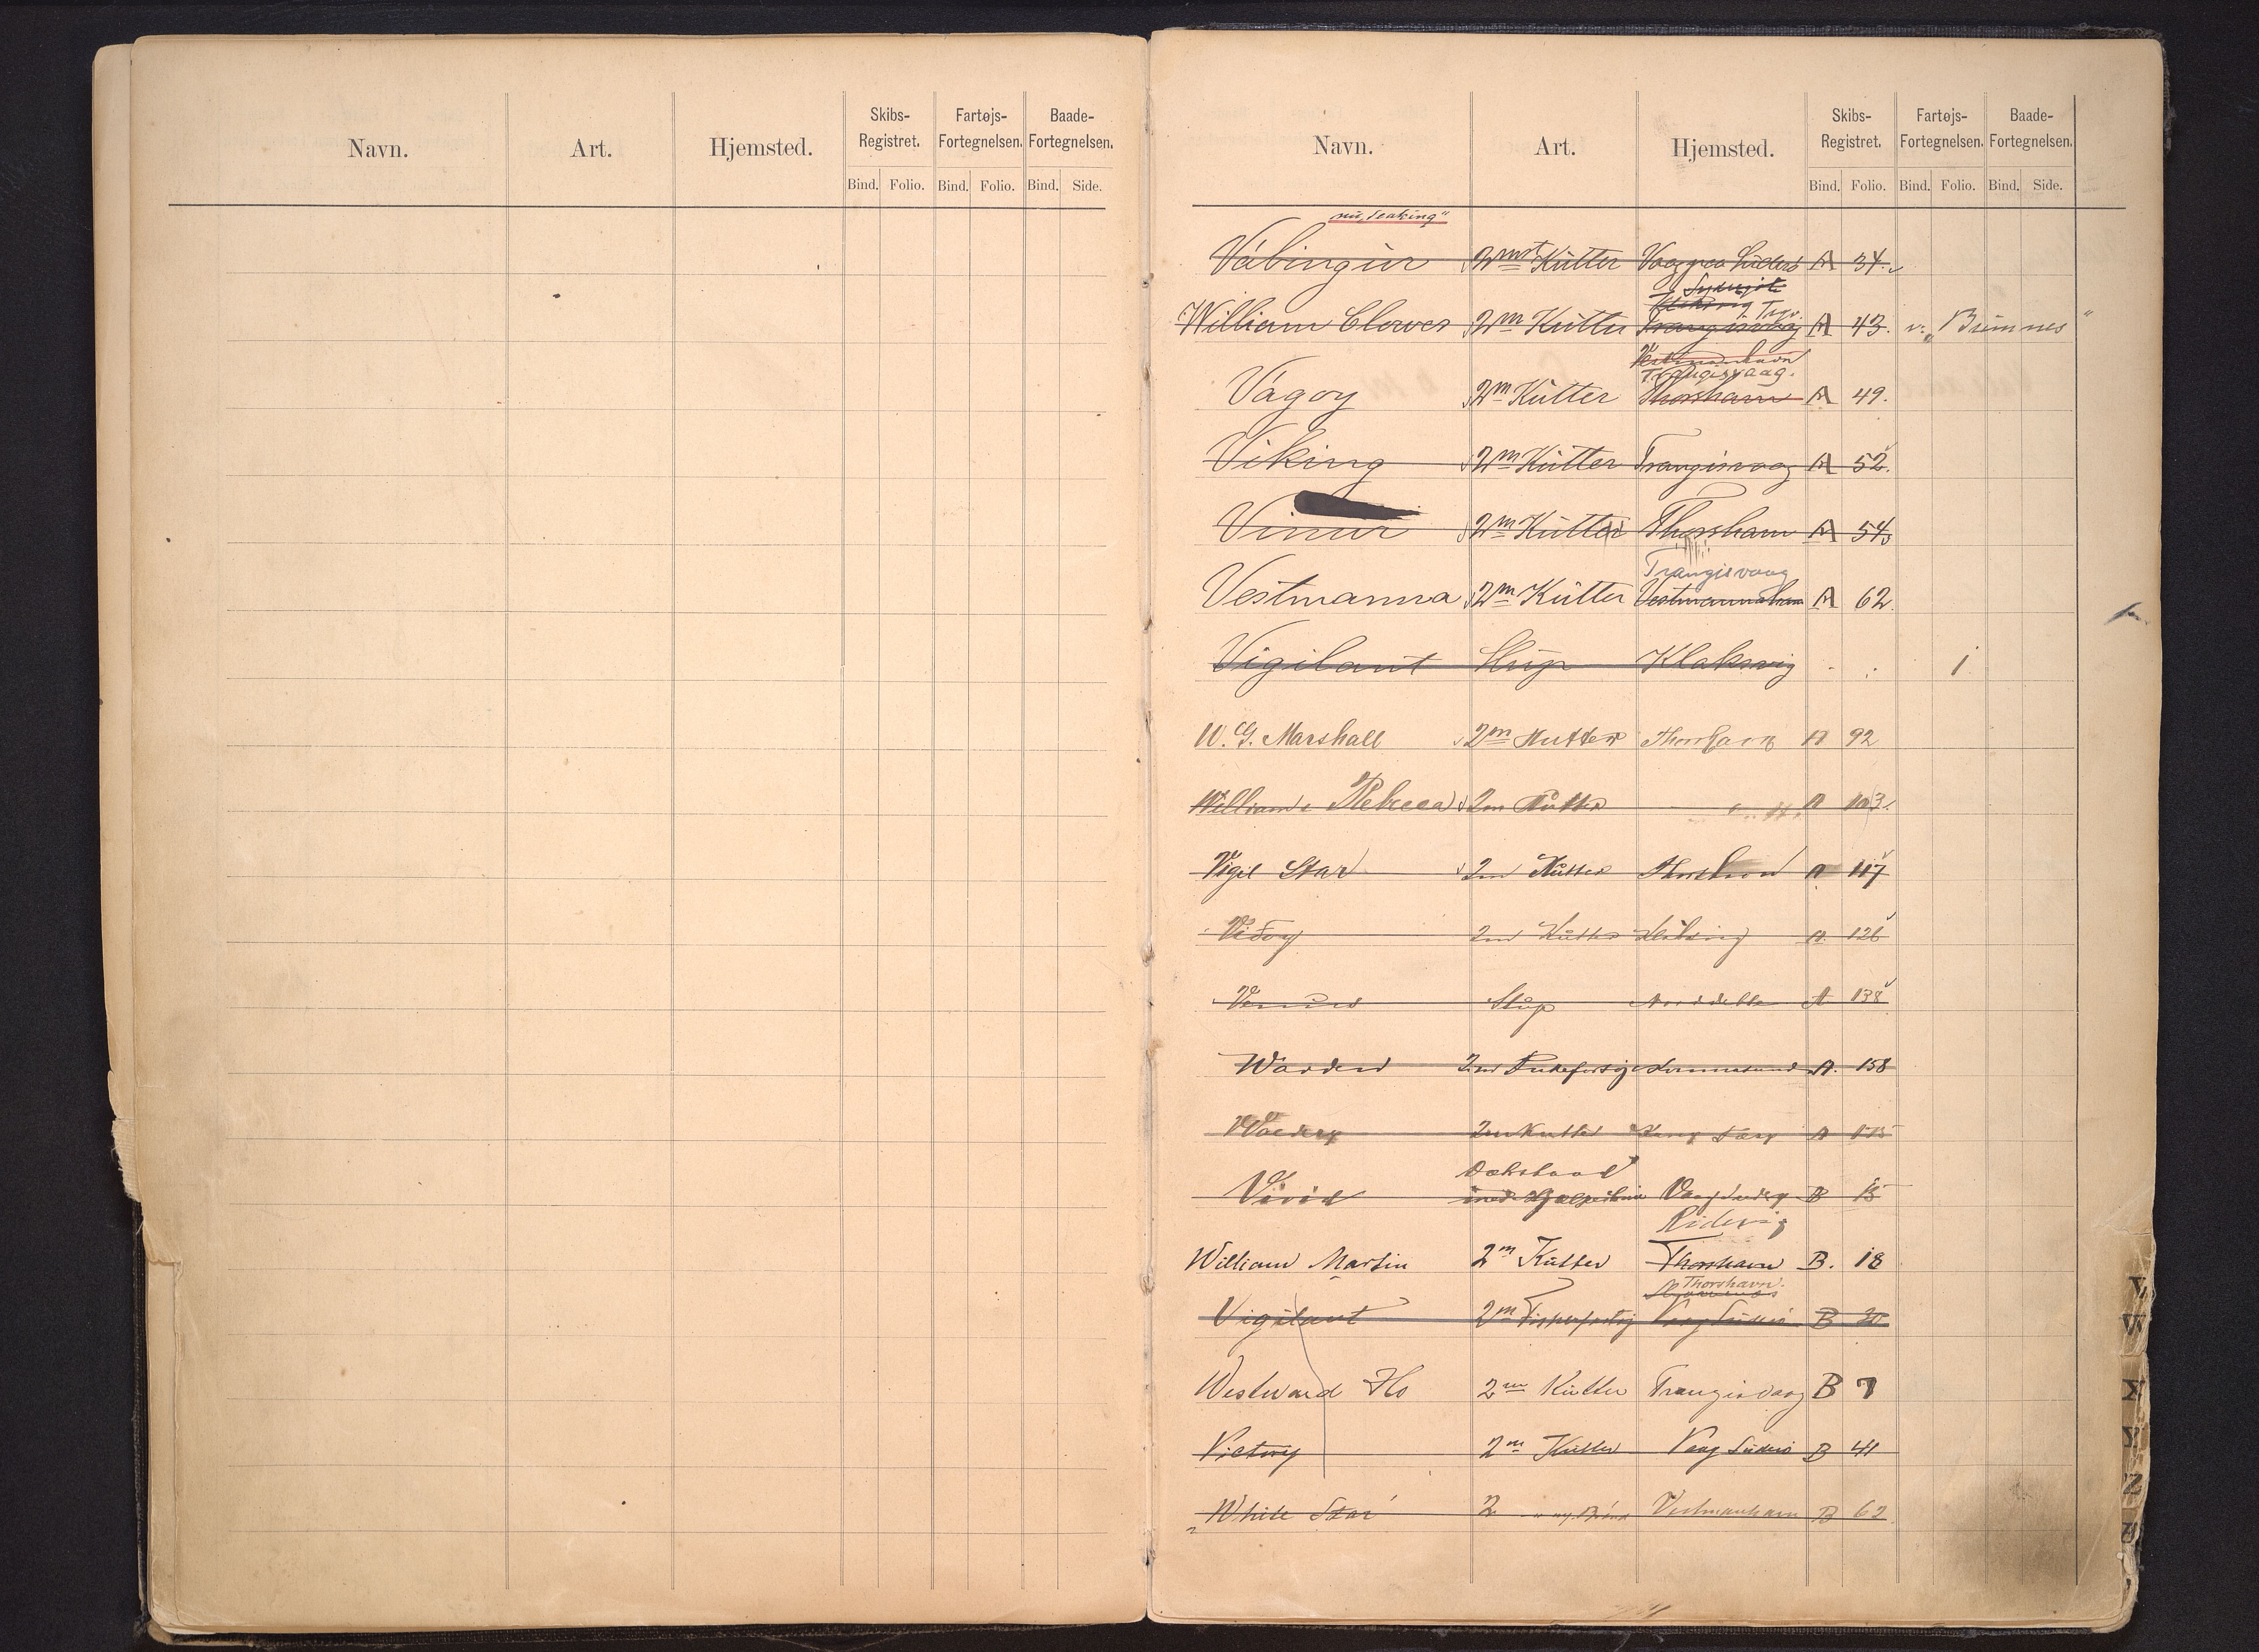 Navn. Art. Hjemsted. Skibs-Registret. Fartøjs-Fortegnelsen. Baade-Fortegnelsen.
Bind. Folio. Bind. Folio. Bind. Side.
Navn. Art. Hjemsted. Skibs-Registret. Fartøjs-Fortegnelsen. Baade-Fortegnelsen.
Bind. Folio. Bind. Folio. Bind. Side.
nu „Seaking"
Vábingur 2mst Kutter Vaag paa Suderø A 34.
William Clowes 2m Kutter Trangisvaag A 43.
Vestmanhavn
Trangisvaag.
Vágoy 2m Kutter Thorshavn A 49.
Viking 2m Kutter Trangisvaag A 52.
Vinur 2m Kutter Thorshavn A 54
Trangisvaag
Vestmanna 2m Kutter Vestmannahavn A 62.
Vigilant Slup Klaksvig 1
W. G. Marshall 2m Kutter Thorshavn A 92
William & Rebecca 2m Kutter A 103.
Vigil Star 2m Kutter Thorshavn A 117
Vidoy 2m Kutter Klaksvig A. 126
Venus Slup Norddeble A 138
Warden 2m A. 158
2m Kutter A 175
Dæksbaad
Vivid B 15
Ridevig
William Martin 2m Kutter Thorshavn B. 18
Thorshavn.
Vigilant 2m Fiskerfartøj Vaag Suderø B 30
Westward Ho 2m Kutter Trangisvaag B 7
Victory 2m Kutter Vaag Suderø B 41
White Star 2 Vestmanhavn B 62
V
W
Y
Z